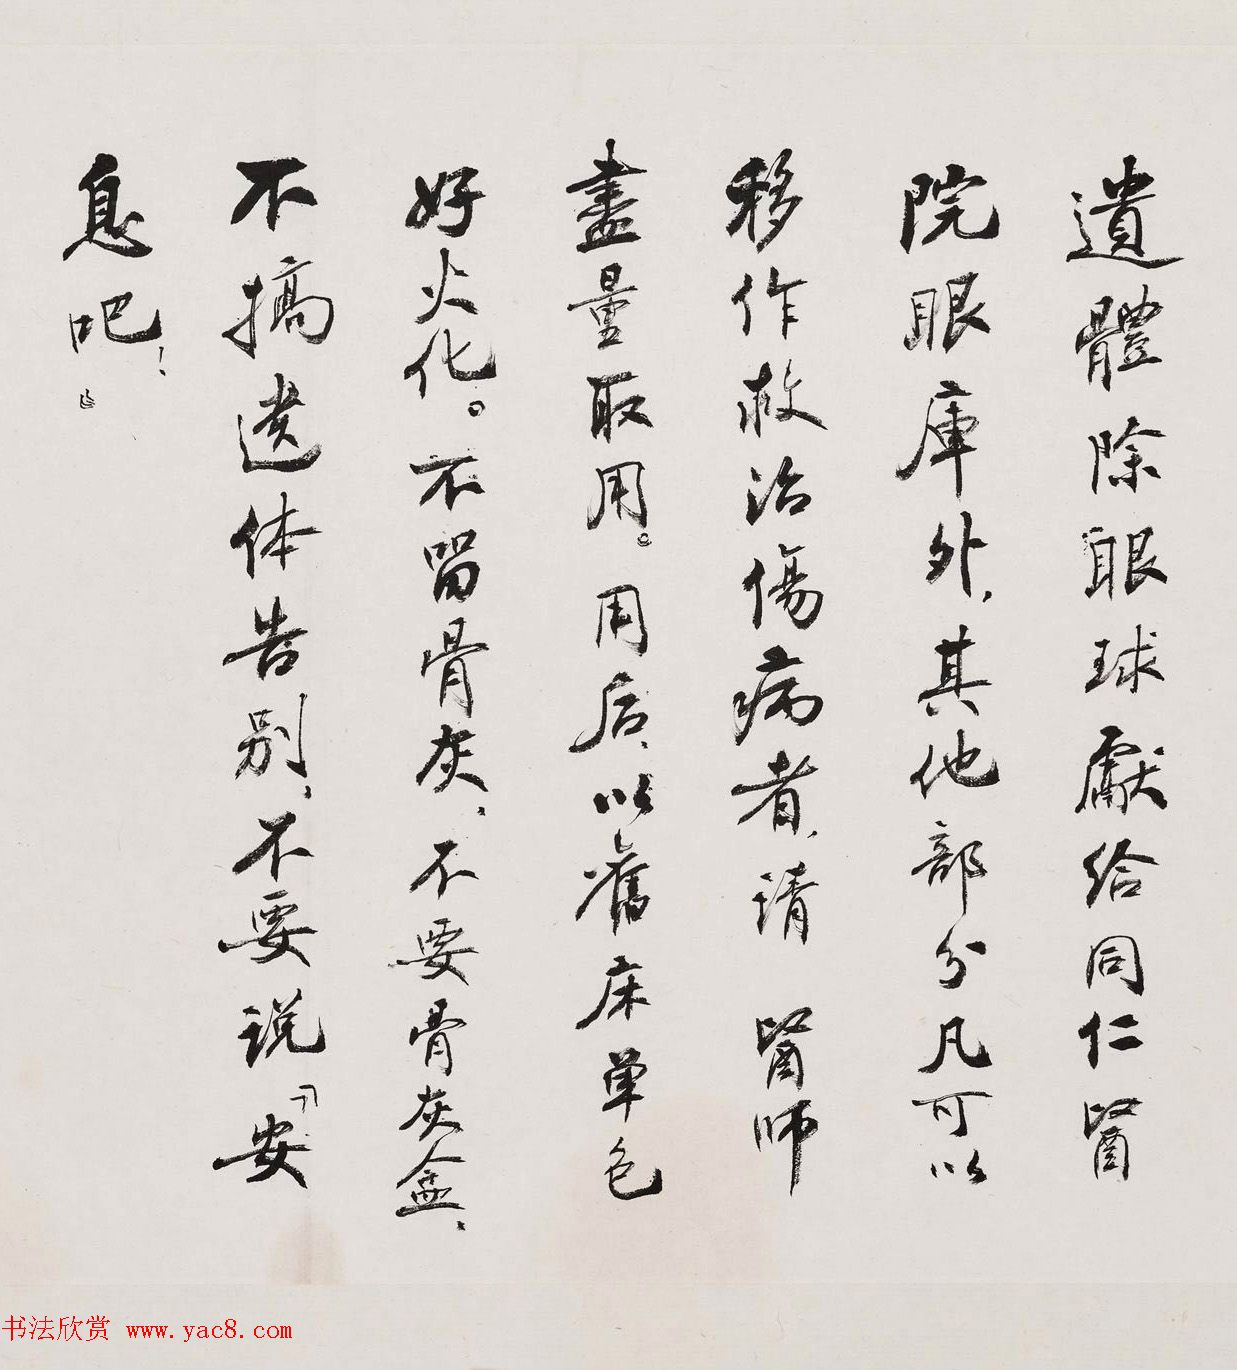 遺體除眼球獻给同仁醫
院眼庫外，其他部分凡可以
移作救治傷病者，请 醫师
盡量取用。用后，以舊床单包
好火化。不留骨灰，不要骨灰盒，
不搞遗体告别，不要说「安
息吧！」
书法欣赏 www.yac8.com